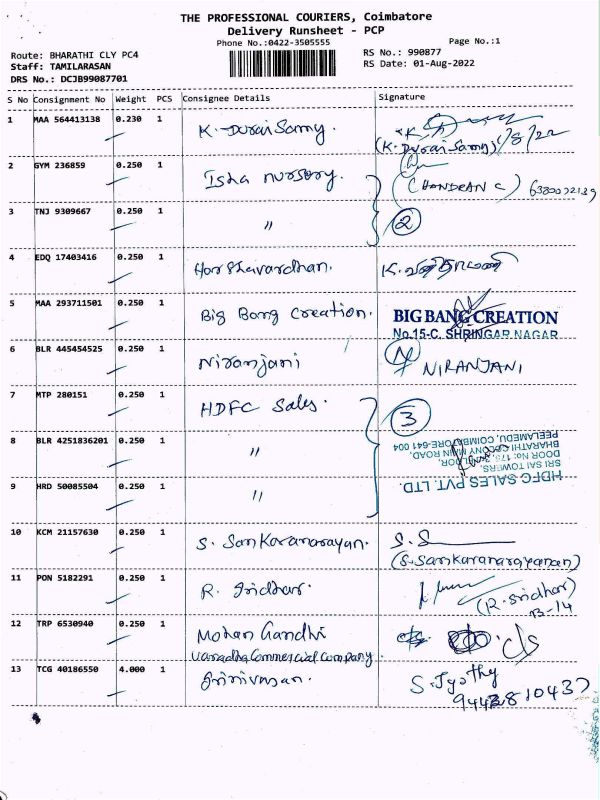 THE PROFESSIONAL COURIERS, Coimbatore
Delivery Runsheet - PCP
Phone No.:0422-3505555
Page No.:1
Route: BHARATHI CLY PC4
Staff: TAMILARASAN
DRS No.: DCJB99087701
RS No.: 990877
RS Date: 01-Aug-2022
S No Consignment No Weight PCS Consignee Details Signature
1 MAA 564413138 0.230 1 K. Durai Samy. (K. Durai Samy) 1/8/22
2 GYM 236859 0.250 1 Isha nursery. (CHANDRAN C)
3 TNJ 9309667 0.250 1 〃 2
4 EDQ 17403416 0.250 1 Harshavardhan.
5 MAA 293711501 0.250 1 Big Bang Creation. BIG BANG CREATION
No.15-C, SHRINGAR NAGAR
6 BLR 445454525 0.250 1 Niranjani NIRANJANI
7 MTP 280151 0.250 1 HDFC Sales. 3
8 BLR 4251836201 0.250 1 〃
HDFC SALES PVT. LTD.
SRI SAI TOWERS,
BHARATHI COLONY MAIN ROAD,
PEELAMEDU, COIMBATORE-641 004
9 HRD 50085504 0.250 1 〃
10 KCM 21157630 0.250 1 S. Sankaranarayan. S. S
(S. Sankaranarayanan)
11 PON 5182291 0.250 1 R. Sridhar. (R. Sridhar)
B-14
12 TRP 6530940 0.250 1 Mohan Gandhi c/s
Varadha Commercial Company
13 TCG 40186550 4.000 1 Srinivasan. S. Jyothy